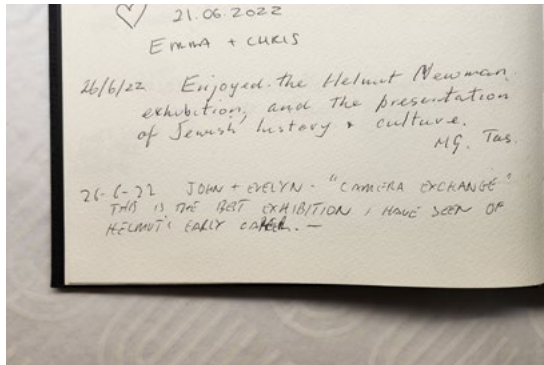 ♡ 21.06.2022
EMMA + CHRIS
26/6/22 Enjoyed the Helmut Newman
exhibition, and the presentation
of Jewish history + culture.
MG. Tas.
26-6-22 JOHN + EVELYN - "CAMERA EXCHANGE"
THIS IS THE BEST EXHIBITION I HAVE SEEN OF
HELMUT'S EARLY CAREER. —